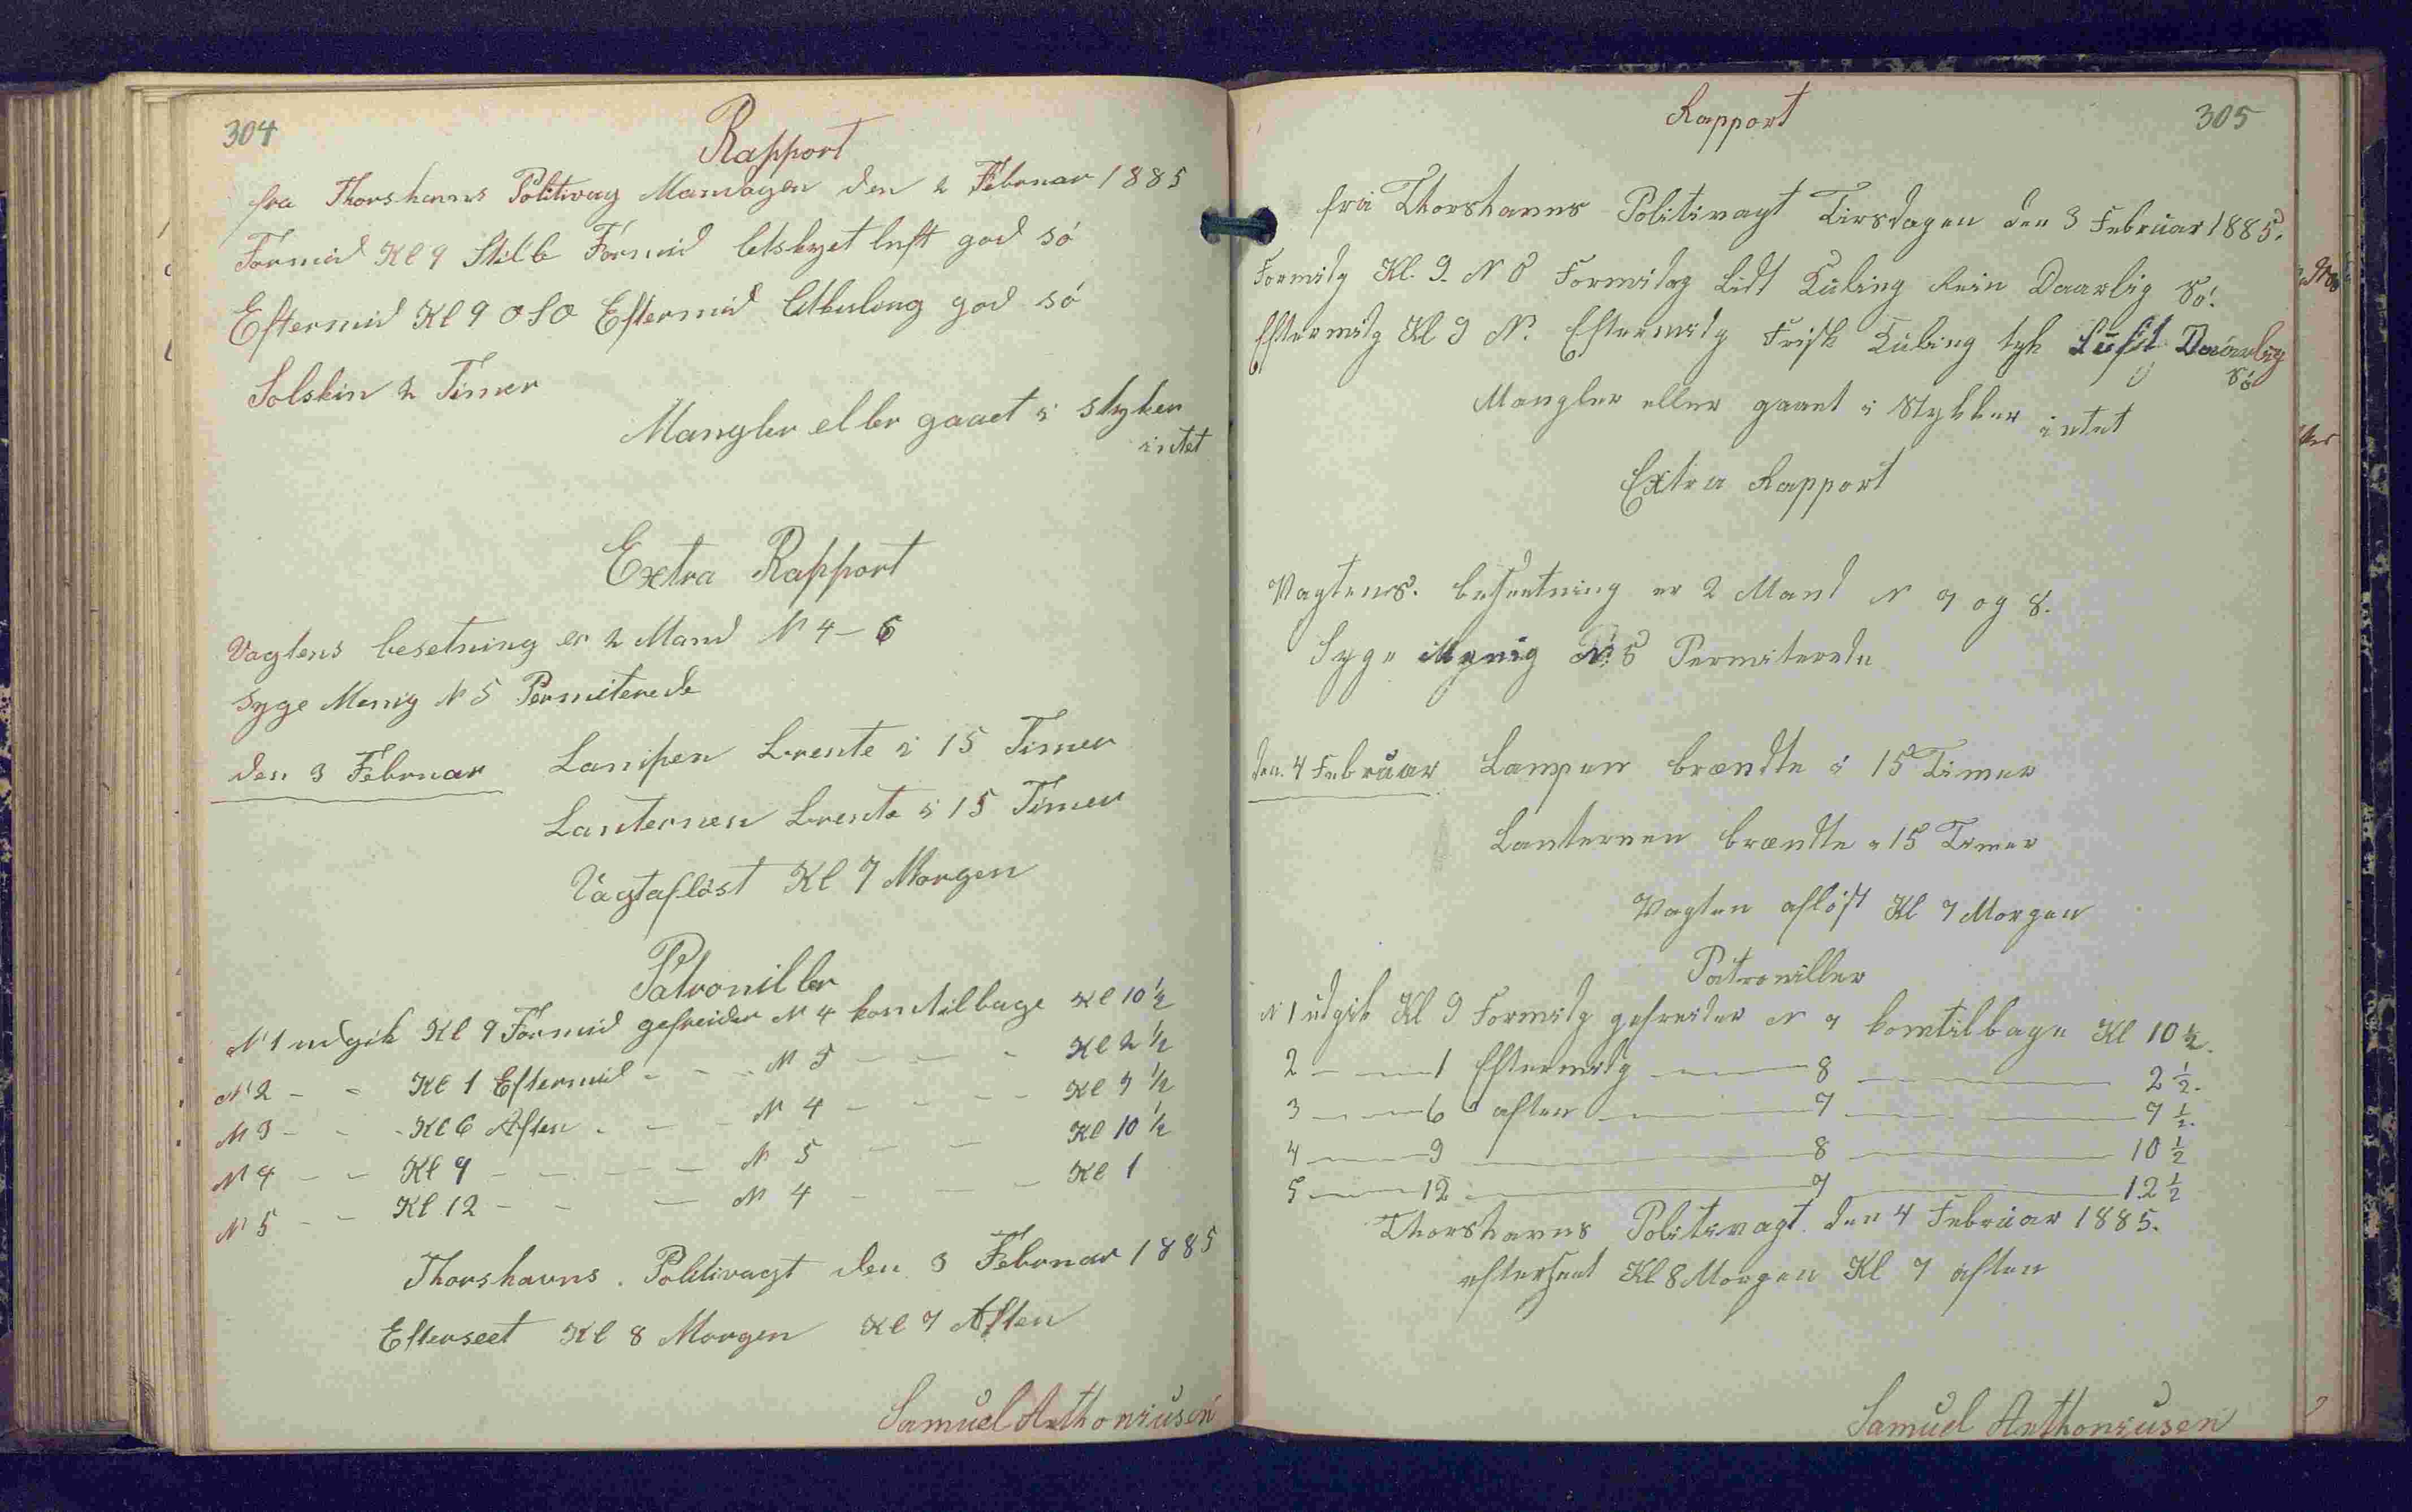 304
Rapport
fra Thorshavns Politivag Mandagen den 2 Februar 1885
Formid Kl 9 Stille Formid letskyet luft god só
Eftermid Kl 9 O S O Eftermid letkuling god só
Solskin 2 Timer
Mangler eller gaaet i styker
intet
Extra Rapport
Vagtens besetning er 2 Mand N 4 - 6
Syge Menig N 5 Permiterede
den 3 Februar Lampen brente i 15 Timer
Lanternen brente i 15 Timer
Vagtaflöst Kl 7 Morgen
Patroniller
N 1 udgik Kl 9 Formid gefreider N 4 komtilbage Kl 10½
N 2 - - Kl 1 Eftermid - - - N 5 - - - Kl 2½
N 3 - - - Kl 6 Aften - - - N 4 - - - - Kl 7½
N 4 - - Kl 9 - - - - - N 5 - - Kl 10½
N 5 - - Kl 12 - - - N 4 - - - Kl 1
Thorshavns Politivagt den 3 Februar 1885
Efterseet Kl 8 Morgen Kl 7 Aften
Samuel Anthoniusen
305
Rapport
fra Thorshavns Politivagt Tirsdagen den 3 Februar 1885.
Formidg Kl. 9. N O Formidag Lidt Kuling Rein Daarlig Só.
Eftermidg Kl 9 N. Eftermidg Frisk Kuling tyk Luft Daarlig
Só
Mangler eller gaaet i Stykker intet
Extra Rapport
Vagtens. besætning er 2 Mand N 7 og 8.
Syge Menig N. 5 Permiterede
den. 4 Februar Lampen brændte i 15 Timer
Lanternen brændte i 15 Timer
Vagten aflöst Kl 7 Morgen
Patroniller
N 1 udgik Kl 9 Formidg gefreider N 7 komtilbage Kl 10½.
2 - - - 1 Eftermidg - - - 8 - - - 2½.
3 - - - 6 aften - - - 7 - - - 7½.
4 - - - 9 - - - 8 - - - 10½
5 - - - 12 - - - 7 - - - 12½
Thorshavns Politivagt. den 4 Februar 1885.
efterseet Kl 8 Morgen Kl 7 aften
Samuel Anthoniusen